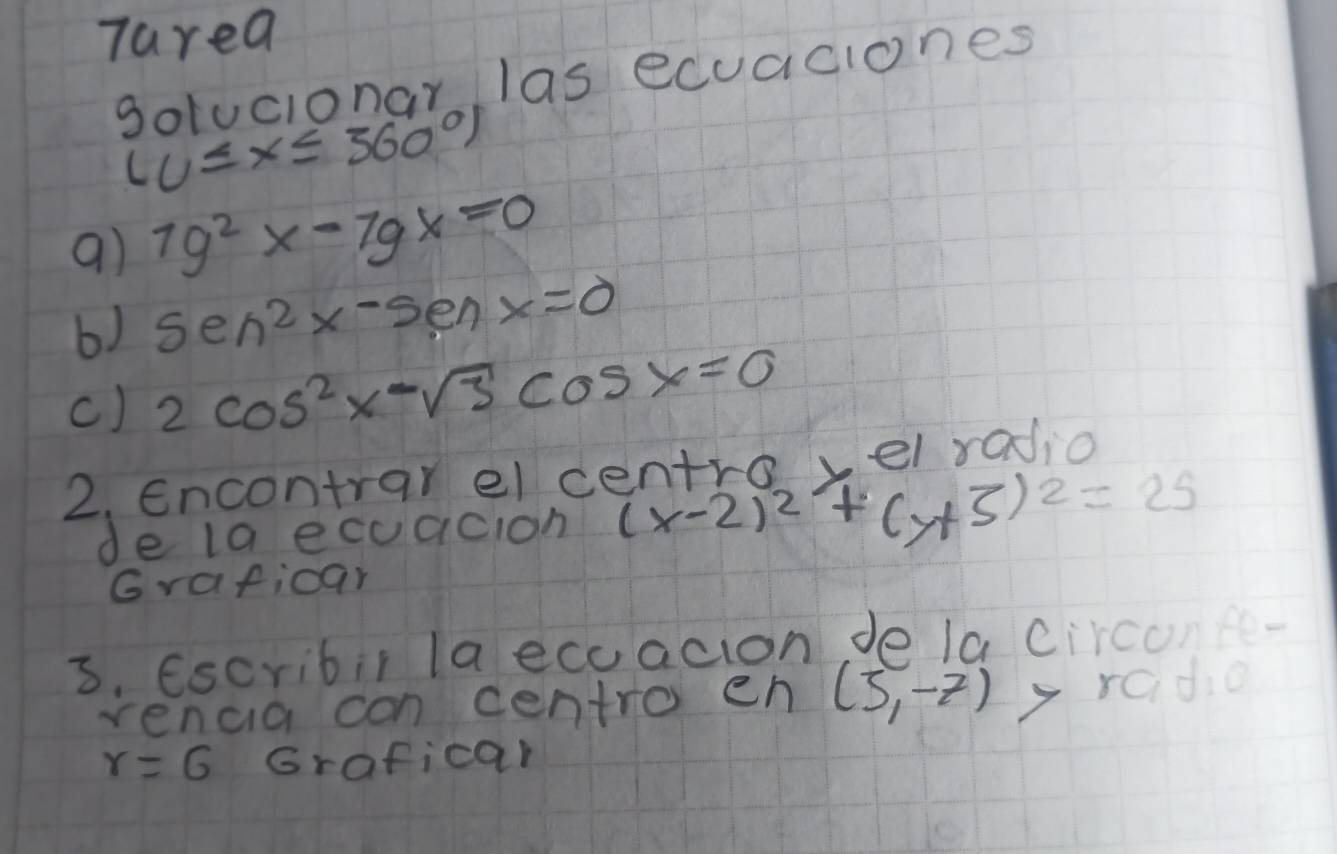 Tarea
Solucionar las ecuaciones
(0 ≤ x ≤ 360°)
a) Tg² x - Tg x = 0
b) Sen² x - Sen x = 0
c) 2 cos² x - √3 cos x = 0
2. Encontrar el centro y el radio
de la ecuacion (x-2)² + (y+3)² = 25
Graficar
3. Escribir la ecuacion de la circunfe-
rencia con centro en (3,-2) y radio
r = 6 Graficar